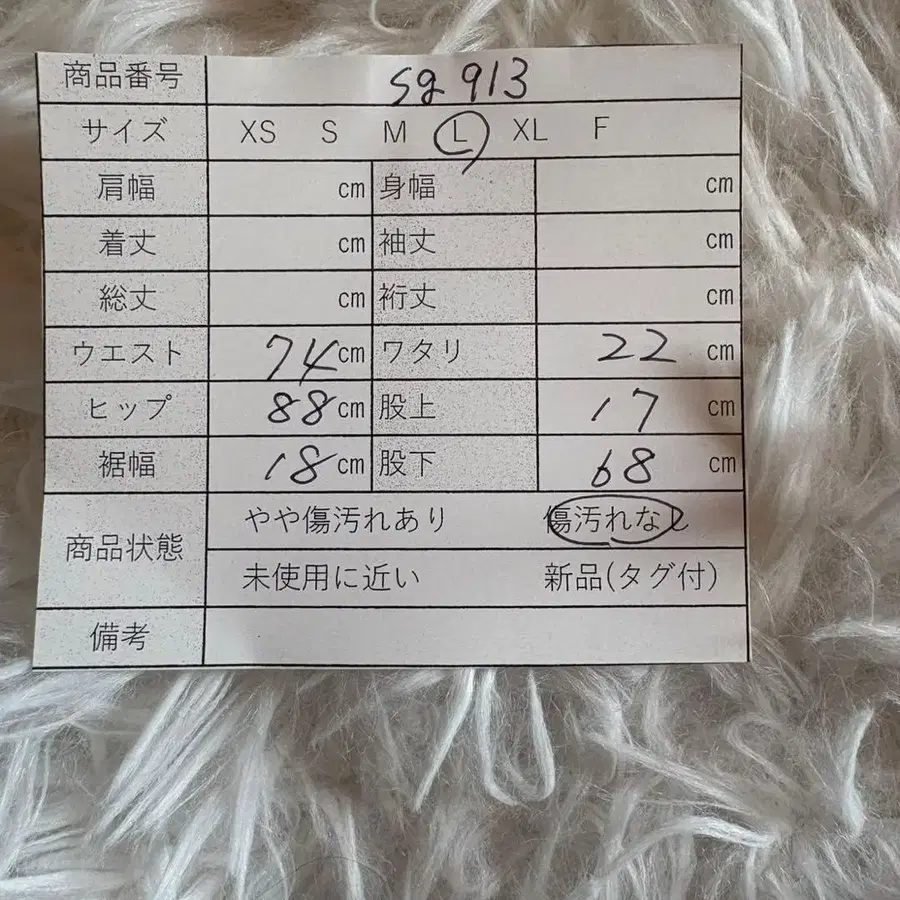 商品番号 sg 913
サイズ XS S M L XL F
肩幅 cm 身幅 cm
着丈 cm 袖丈 cm
総丈 cm 裄丈 cm
ウエスト 74 cm ワタリ 22 cm
ヒップ 88 cm 股上 17 cm
裾幅 18 cm 股下 68 cm
商品状態 やや傷汚れあり 傷汚れなし
未使用に近い 新品(タグ付)
備考